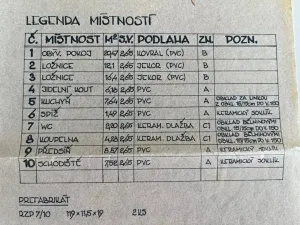 LEGENDA MÍSTNOSTÍ
Č. MÍSTNOST M² S.V. PODLAHA ZN. POZN.
1 OBÝV. POKOJ 2,65 KOVRAL (PVC) B
2 LOŽNICE 2,65 JEKOR (PVC) B
3 LOŽNICE 16,4 2,65 JEKOR (PVC) B
4 JÍDELNÍ KOUT 2,65 PVC A
5 KUCHYŇ 7,64 2,65 PVC A OBKLAD ZA LINKOU
Z OBKL. 15/15cm DO V. 150
6 SPÍŽ 1,49 2,65 PVC A KERAMICKÝ SOKLÍK
7 WC 2,65 KERAM. DLAŽBA C1 OBKLAD BĚLNINOVÝMI
OBKL. 15/15cm DO V. 150
8 KOUPELNA 2,65 KERAM. DLAŽBA C1 OBKLAD BĚLNINOVÝMI
OBKL. 15/15cm DO V. 150
9 PŘEDSÍŇ 8,57 2,65 PVC A KERAMICKÝ SOKLÍK
10 SCHODIŠTĚ 7,52 2,65 PVC A KERAMICKÝ SOKLÍK
PREFABRIKÁT
RZP 7/10 119 × 11,5 × 19 2 KS